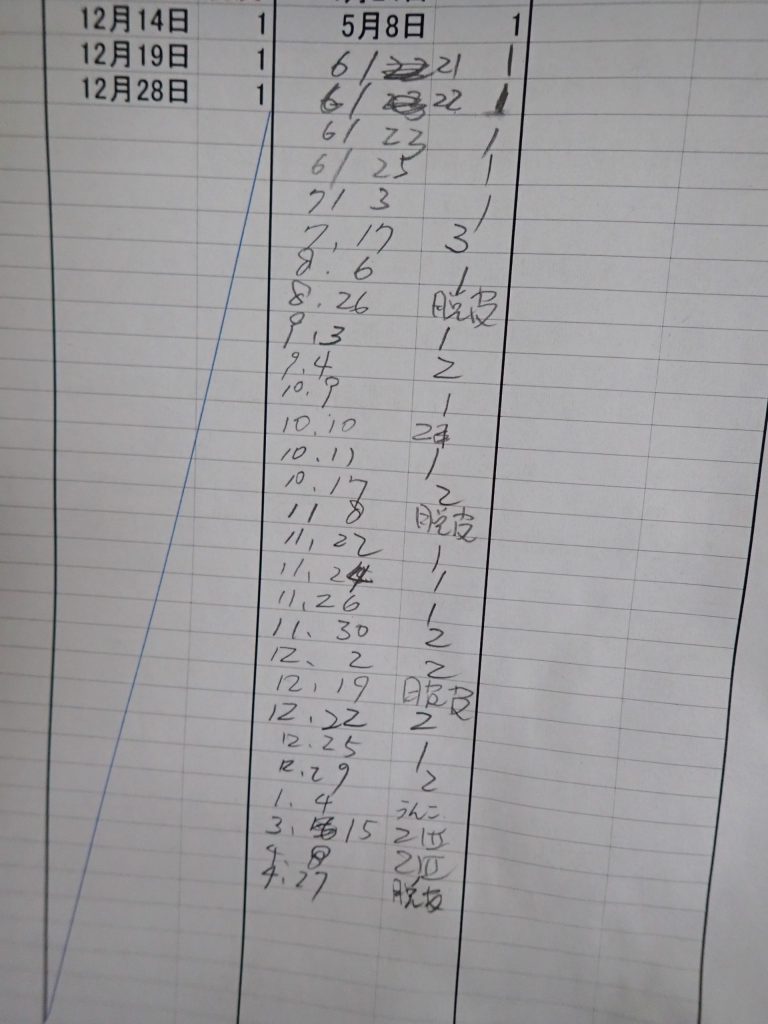 12月14日 1
12月19日 1
12月28日 1
5月8日 1
6/ 21 1
6/ 22 1
6/ 23 1
6/ 25 1
7/ 3 1
7, 17 3
8. 6 1
8. 26 脱皮
9.3 1
9.4 2
10.9 1
10.10 2
10.11 1
10.17 2
11 8 脱皮
11, 22 1
11, 24 1
11, 26 1
11、30 2
12、2 2
12, 19 脱皮
12. 22 2
12.25 1
12.29 2
1. 4 うんこ
3. 15 2匹
4. 8 2匹
4.27 脱皮